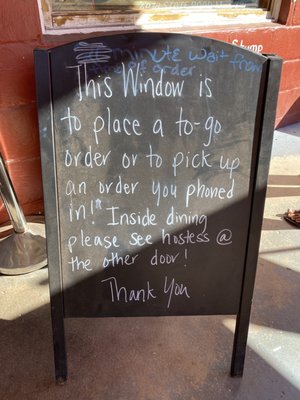 minute wait from
time of order
This Window is
to place a to-go
order or to pick up
an order you phoned
in! Inside dining
please see hostess @
the other door!
Thank You